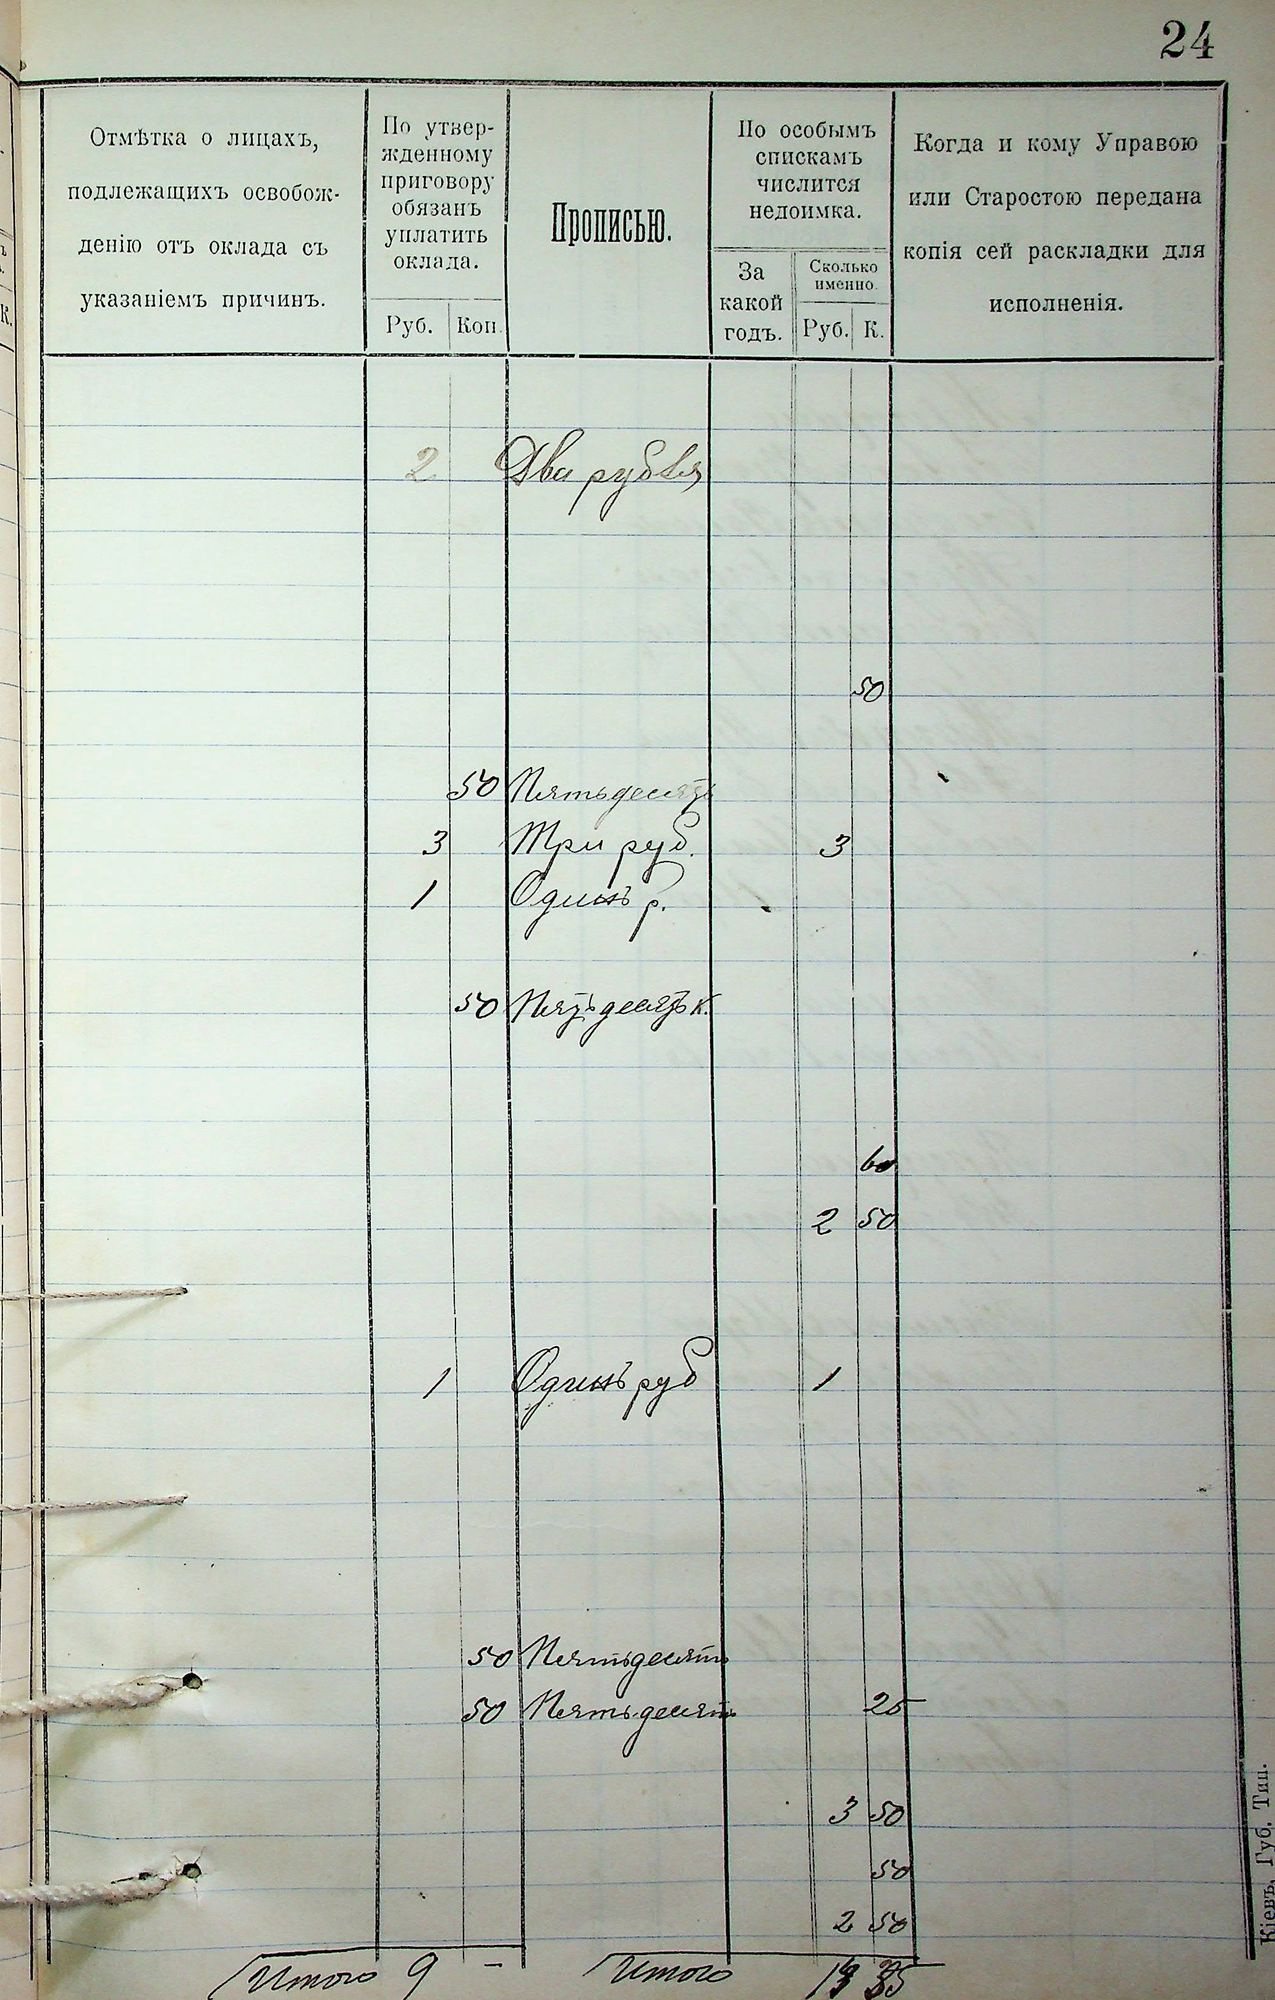 24
Отмѣтка о лицахъ,
подлежащихъ освобож-
денію отъ оклада съ
указаніемъ причинъ.
По утвер-
жденному
приговору
обязанъ
уплатить
оклада.
Руб. Коп.
Прописью.
По особымъ
спискамъ
числится
недоимка.
За
какой
годъ.
Сколько
именно.
Руб. К.
Когда и кому Управою
или Старостою передана
копія сей раскладки для
исполненія.
2 Два рубля
50
50 Пятьдесятъ
3 Три руб. 3
1 Одинъ р.
50 Пятьдесятъ к.
60
2 50
1 Одинъ руб 1
50 Пятьдесятъ
50 Пятьдесятъ 25
3 50
50
2 50
Итого 9 - Итого
Кіевъ, Губ. Тип.